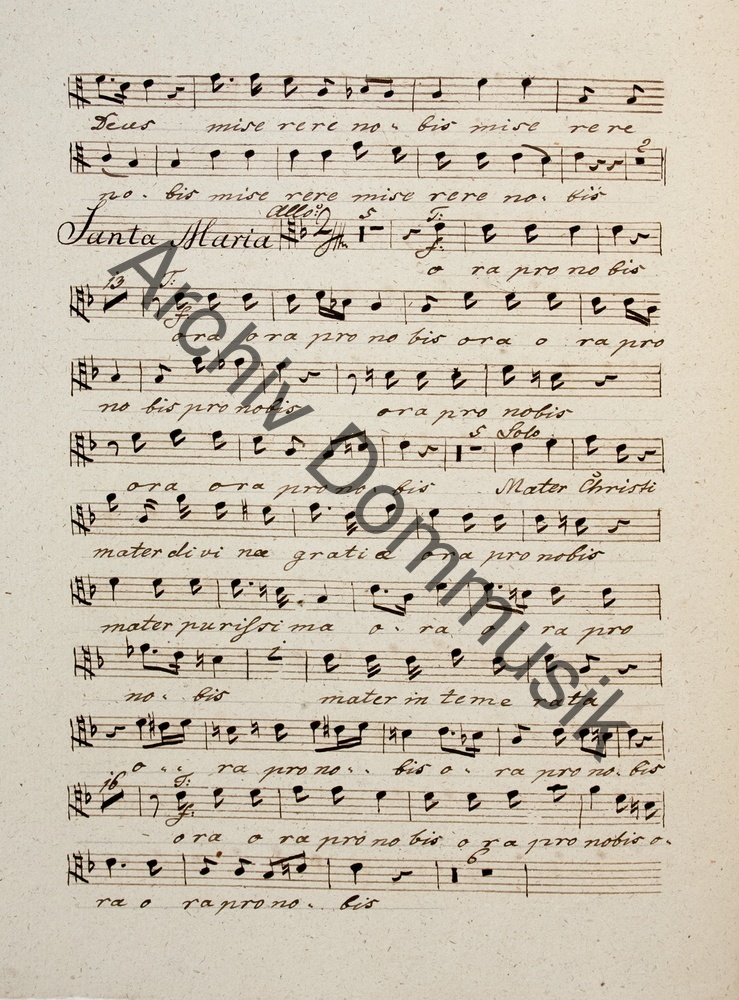 Deus mise rere no - bis mise re re
2
no - bis mise rere mise rere no - bis
Santa Maria Allo: 2 5 T: f:
o ra pro no bis
13 T: f:
ora ora pro no bis ora o ra pro
no bis pro nobis ora pro nobis
5 Solo
ora ora pro no - bis Mater Christi
mater divi næ gratiæ ora pro nobis
mater purissi ma o - ra o ra pro
2
no - bis mater in teme rata
o - - ra pro no - - bis o - ra pro no - bis
16 T: f:
ora o ra pro no bis o ra pro nobis o -
6
ra o ra pro no - bis
Archiv Dommusik